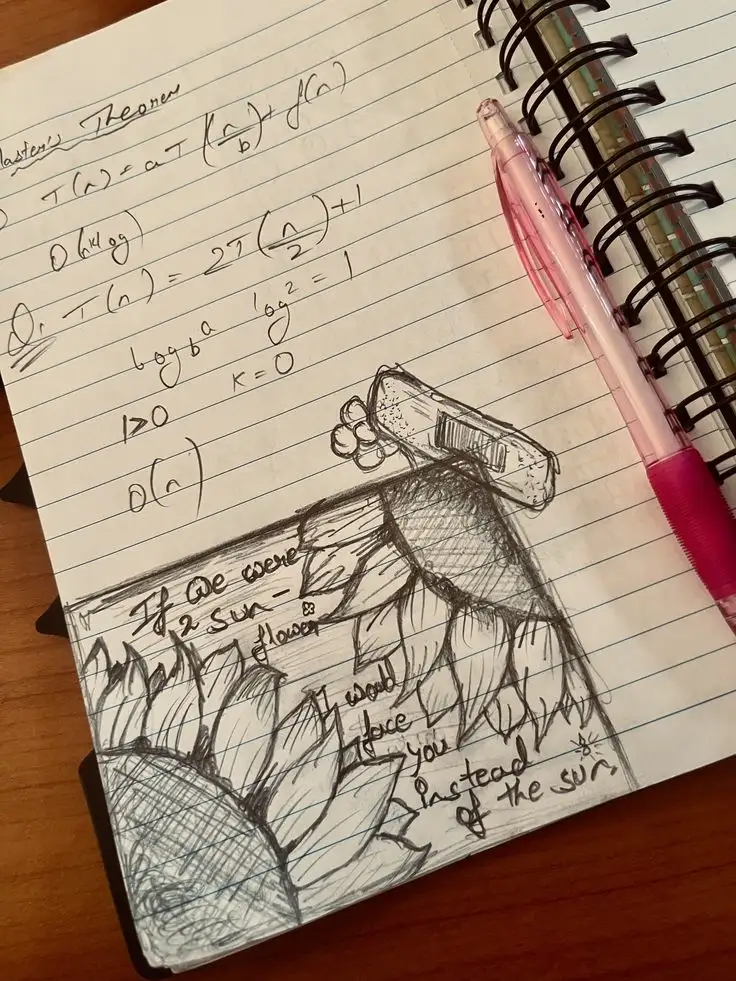 Master's Theorem
T(n) = aT(n/b) + f(n)
Q. T(n) = 2T(n/2) + 1
log_b^a log^2 = 1
K = 0
1>0
O(n)
If we were
2 sun-
flower
I woud
face
you
instead
of the sun.